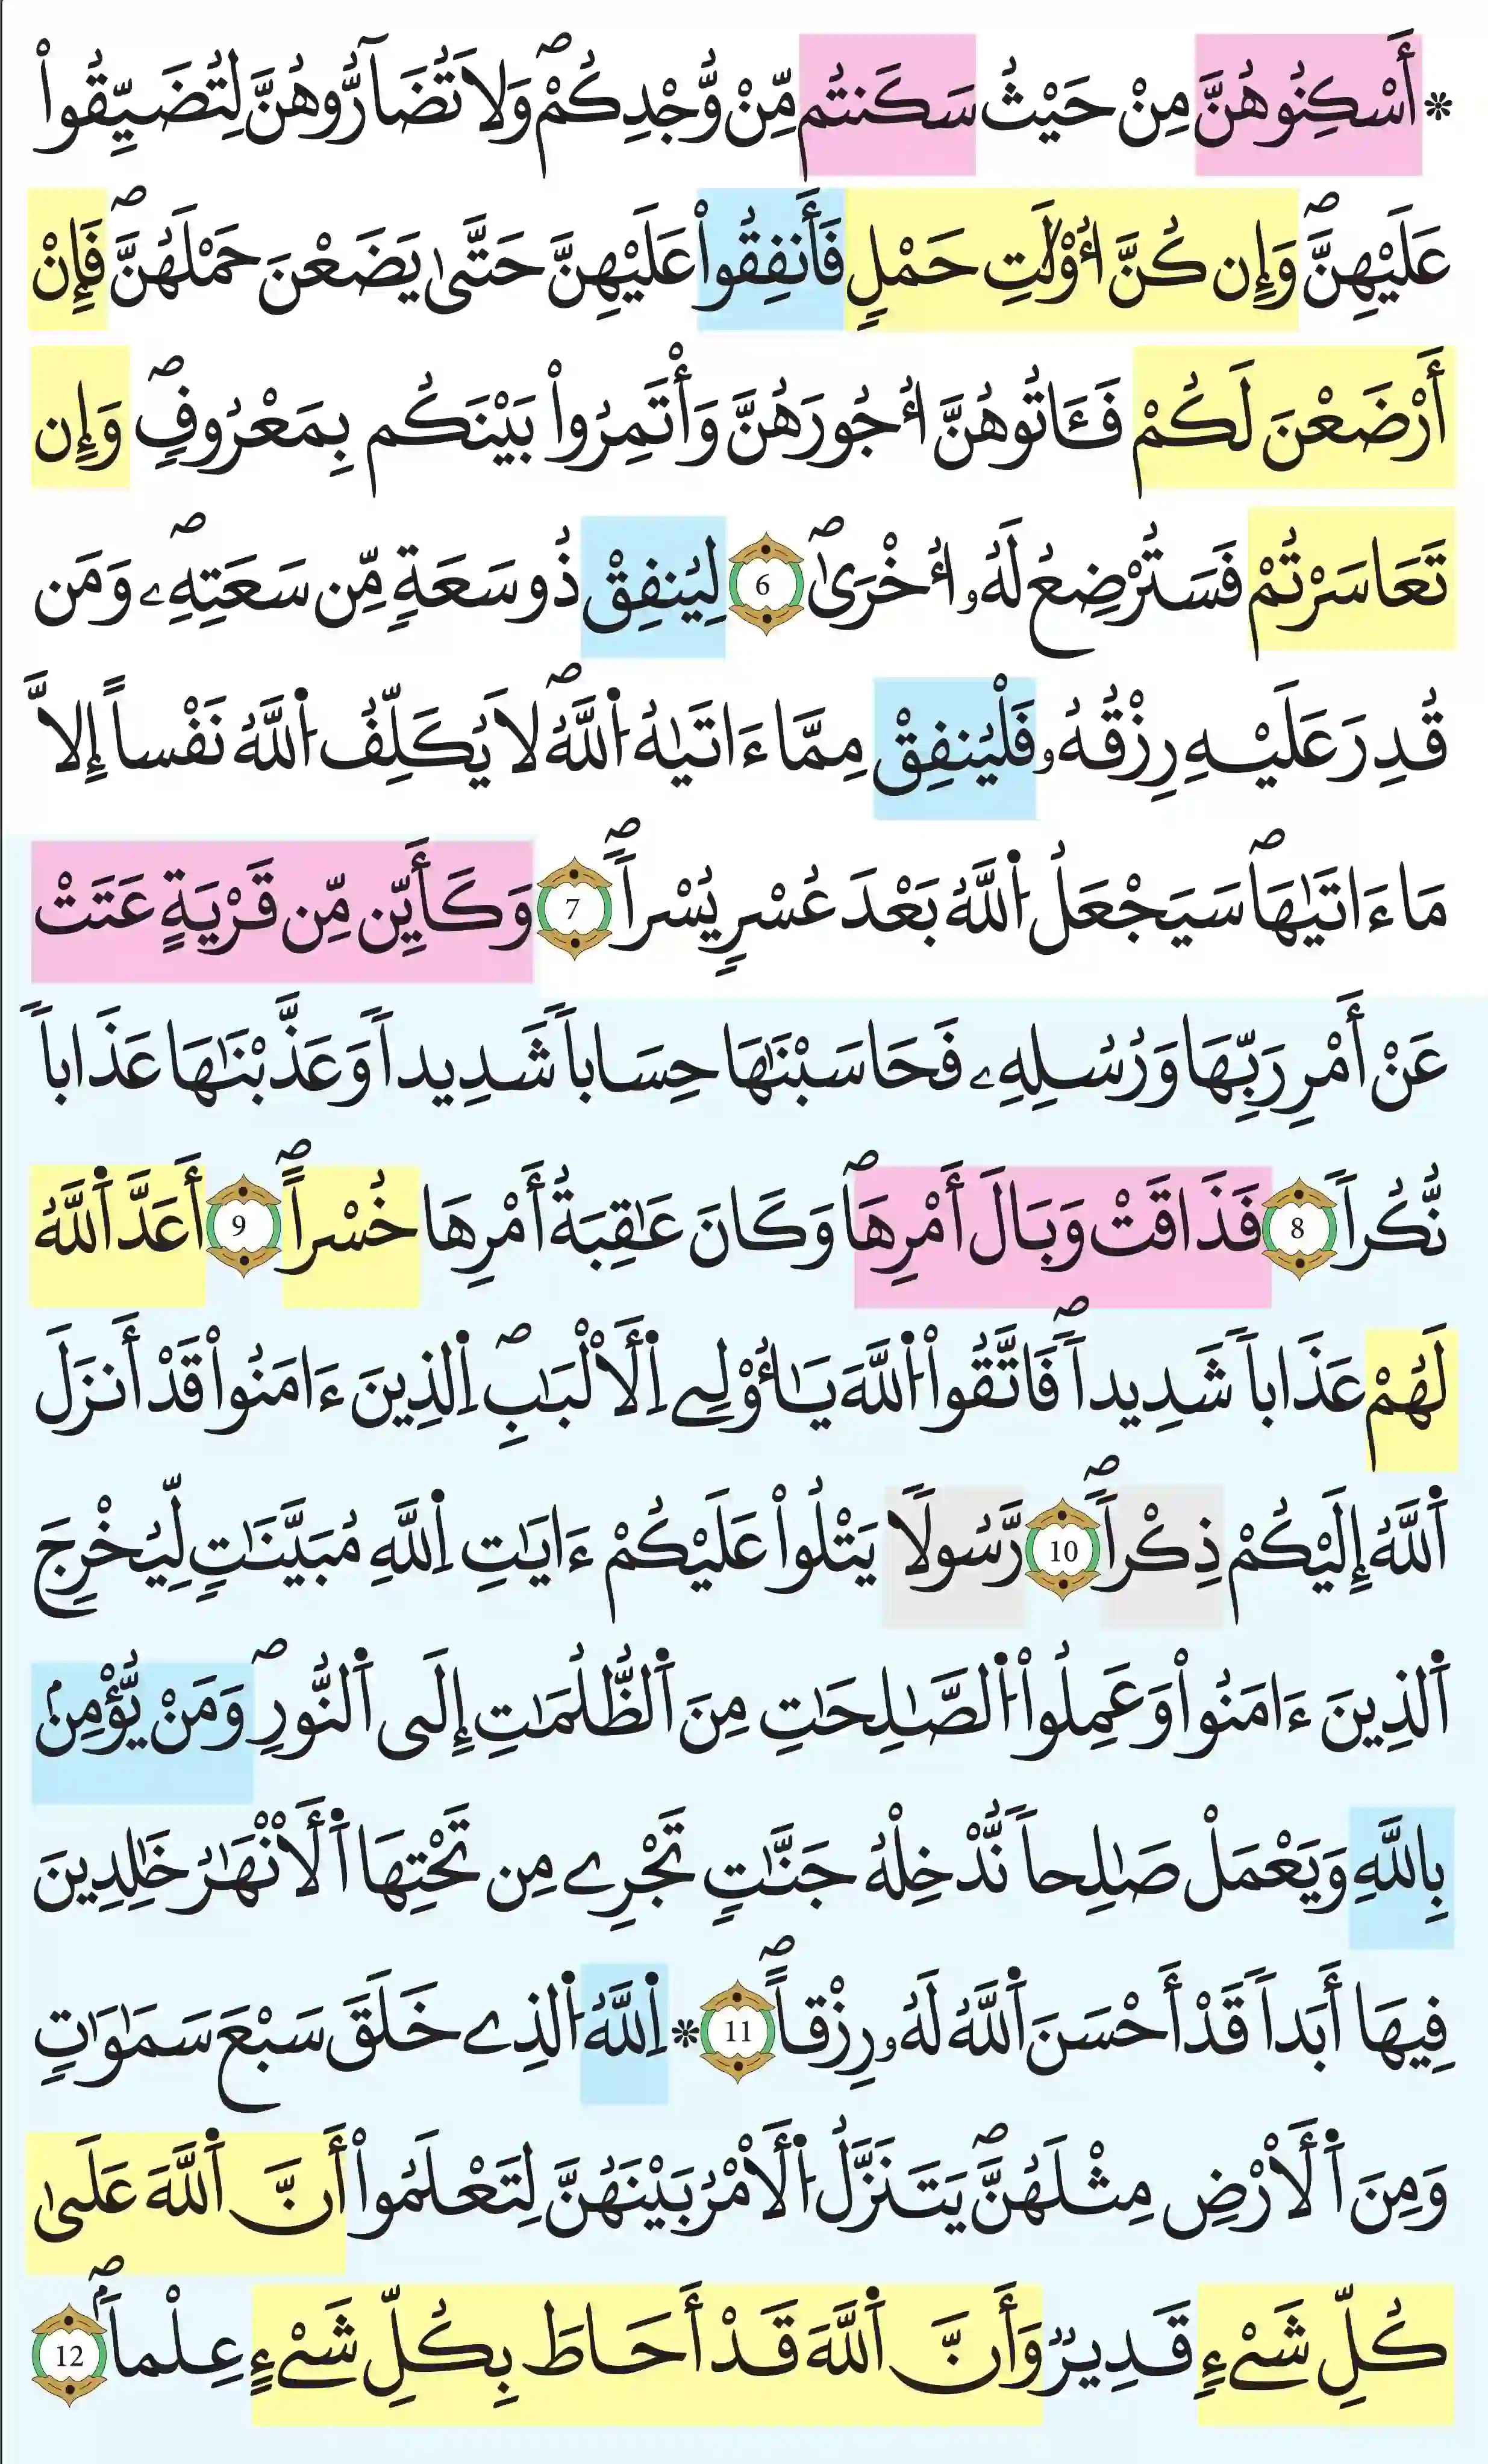 * أَسْكِنُوهُنَّ مِنْ حَيْثُ سَكَنتُم مِّنْ وُّجْدِكُمْۖ وَلَا تُضَآرُّوهُنَّ لِتُضَيِّقُواْ
عَلَيْهِنَّۖ وَإِن كُنَّ أُوْلَٰتِ حَمْلٍ فَأَنفِقُواْ عَلَيْهِنَّ حَتَّىٰ يَضَعْنَ حَمْلَهُنَّۖ فَإِنْ
أَرْضَعْنَ لَكُمْ فَـَٔاتُوهُنَّ أُجُورَهُنَّ وَأْتَمِرُواْ بَيْنَكُم بِمَعْرُوفٍۖ وَإِن
تَعَاسَرْتُمْ فَسَتُرْضِعُ لَهُۥ أُخْرَىٰۖ 6 لِيُنفِقْ ذُو سَعَةٍ مِّن سَعَتِهِۦۖ وَمَن
قُدِرَ عَلَيْهِ رِزْقُهُۥ فَلْيُنفِقْ مِمَّا ءَاتَيٰهُ اُ۬للَّهُۖ لَا يُكَلِّفُ اُ۬للَّهُ نَفْساً إِلَّا
مَا ءَاتَيٰهَاۖ سَيَجْعَلُ اُ۬للَّهُ بَعْدَ عُسْرٍ يُسْراًۖ 7 وَكَأَيِّن مِّن قَرْيَةٍ عَتَتْ
عَنْ أَمْرِ رَبِّهَا وَرُسُلِهِۦ فَحَاسَبْنَٰهَا حِسَاباً شَدِيداً وَعَذَّبْنَٰهَا عَذَاباً
نُّكُراً 8 فَذَاقَتْ وَبَالَ أَمْرِهَاۖ وَكَانَ عَٰقِبَةُ أَمْرِهَا خُسْراًۖ 9 أَعَدَّ اَ۬للَّهُ
لَهُمْ عَذَاباً شَدِيداًۖ فَاتَّقُواْ اُ۬للَّهَ يَٰأُوْلِے اِ۬لْأَلْبَٰبِۖ اِ۬لذِينَ ءَامَنُواْ قَدْ أَنزَلَ
اَ۬للَّهُ إِلَيْكُمْ ذِكْراًۖ 10 رَّسُولًا يَتْلُواْ عَلَيْكُمْ ءَايَٰتِ اِ۬للَّهِ مُبَيَّنَٰتٍ لِّيُخْرِجَ
اَ۬لذِينَ ءَامَنُواْ وَعَمِلُواْ اُ۬لصَّٰلِحَٰتِ مِنَ اَ۬لظُّلُمَٰتِ إِلَى اَ۬لنُّورِۖ وَمَنْ يُّؤْمِنۢ
بِاللَّهِ وَيَعْمَلْ صَٰلِحاً نُّدْخِلْهُ جَنَّٰتٍ تَجْرِے مِن تَحْتِهَا اَ۬لْأَنْهَٰرُ خَٰلِدِينَ
فِيهَا أَبَداً قَدْ أَحْسَنَ اَ۬للَّهُ لَهُۥ رِزْقاًۖ 11 * اِ۬للَّهُ اُ۬لذِے خَلَقَ سَبْعَ سَمَٰوَٰتٍ
وَمِنَ اَ۬لْأَرْضِ مِثْلَهُنَّۖ يَتَنَزَّلُ اُ۬لْأَمْرُ بَيْنَهُنَّ لِتَعْلَمُواْ أَنَّ اَ۬للَّهَ عَلَىٰ
كُلِّ شَےْءٍ قَدِيرٌ وَأَنَّ اَ۬للَّهَ قَدْ أَحَاطَ بِكُلِّ شَےْءٍ عِلْماًۖ 12